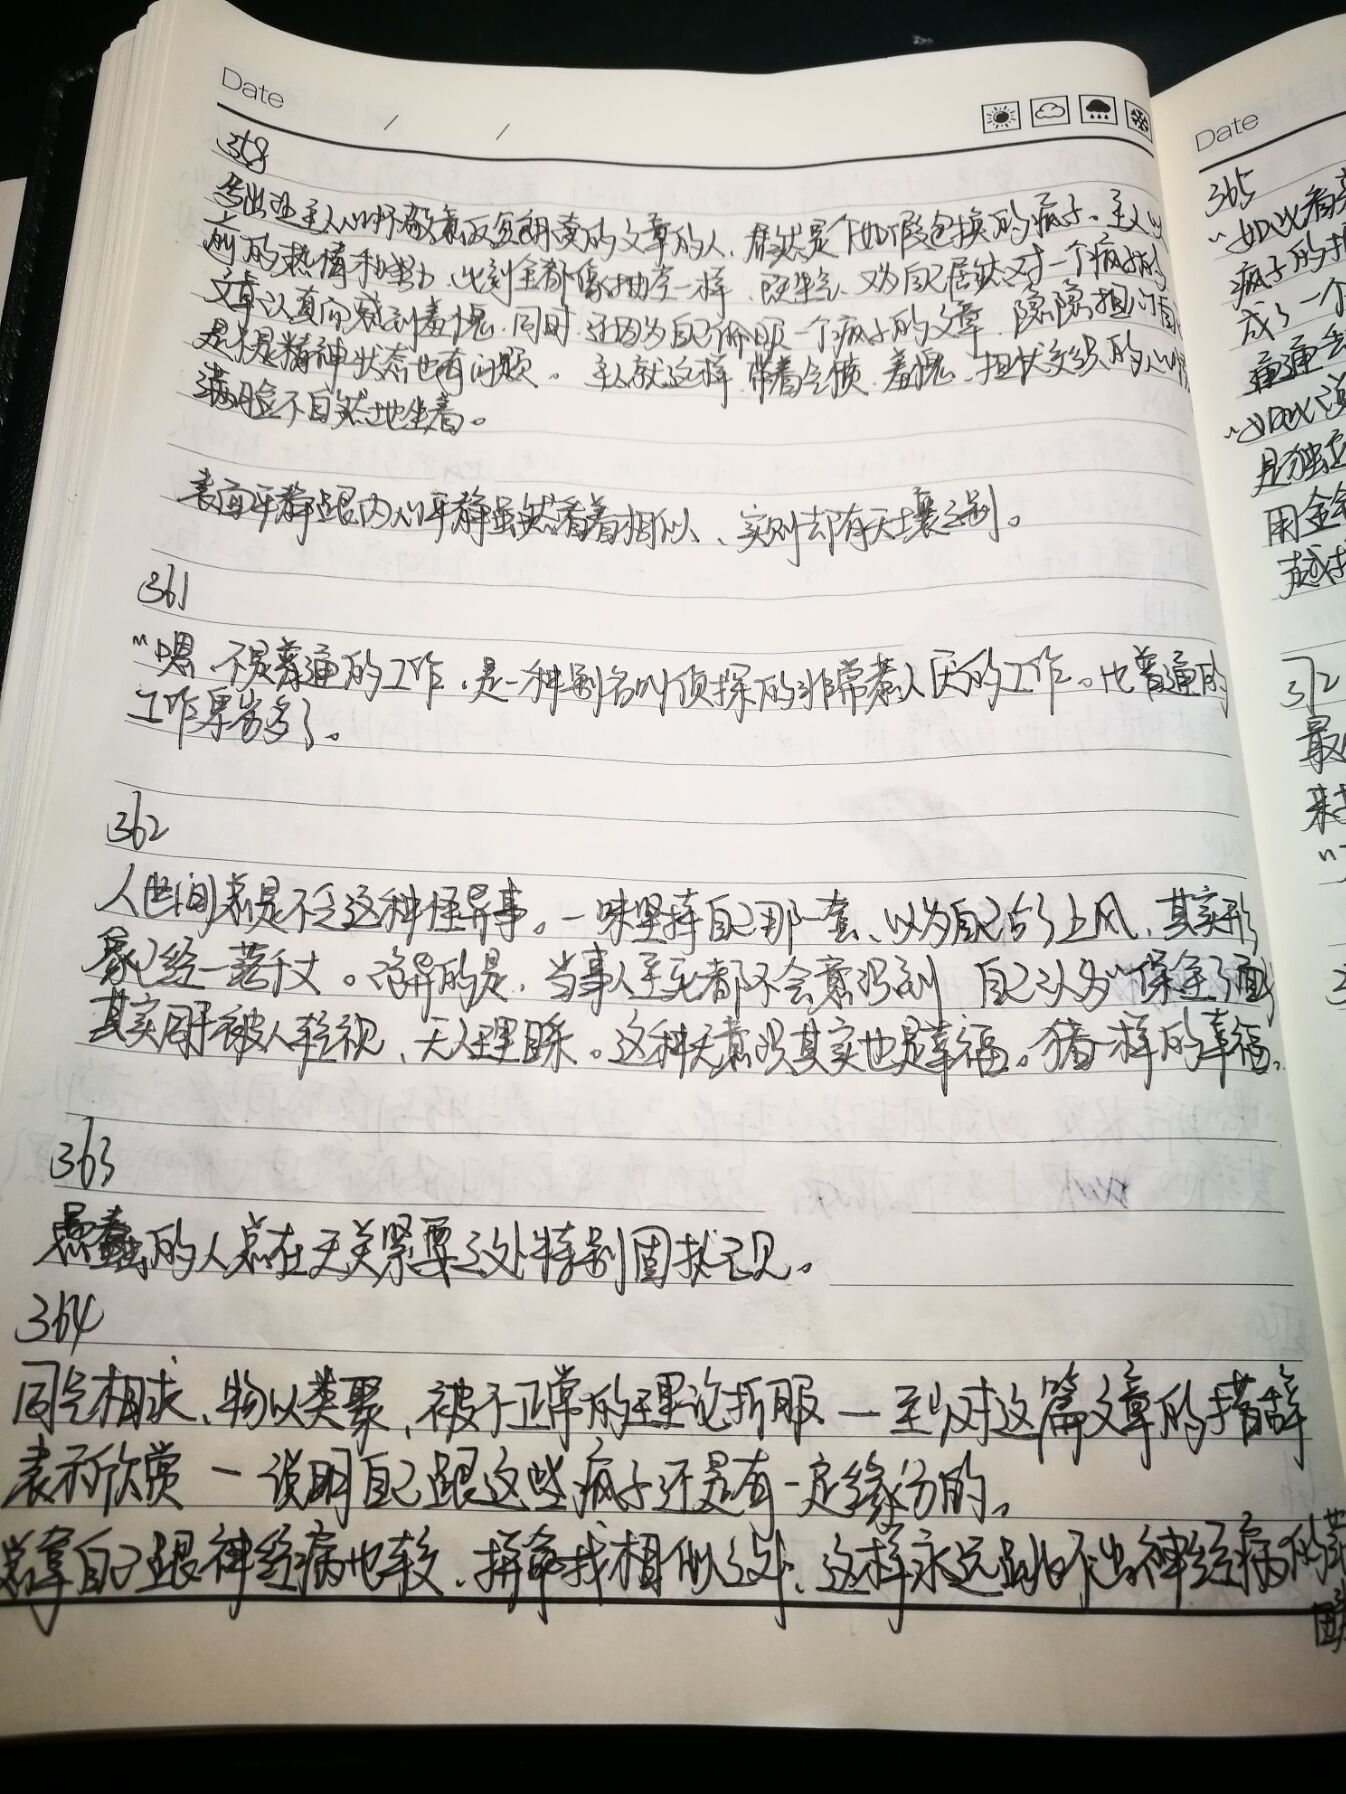 Date
368
写出让主人心怀敬意反复朗读的文章的人，居然是个如假包换的疯子。主人以
前的热情和努力，此刻全都像抽空一样，既生气，又为自己居然对一个疯子的
文章认真而感到羞愧，同时，还因为自己佩服一个疯子的文章，隐隐担心自己
是不是精神状态也有问题。主人就这样，带着气愤、羞愧、担忧交织的心情
满脸不自然地坐着。
表面平静跟内心平静虽然看着相似、实则却有天壤之别。
361
"嗯，不是普通的工作，是一种别名叫侦探的非常惹人厌的工作。比普通的
工作卑劣多了。
362
人世间总是不乏这种怪异事。一味坚持自己那一套、以为自己占了上风，其实形
象已经一落千丈。诡异的是，当事人至死都不会意识到 自己以为"保全了面
其实用于被人轻视、无人理睬。这种无意识其实也是幸福。猪一样的幸福。
363
愚蠢的人总在无关紧要之处特别固执己见。
364
同气相求、物以类聚，被不正常的理论折服—至少对这篇文章的措辞
表示欣赏—说明自己跟这些疯子还是有一定缘分的。
总拿自己跟神经病比较、拼命找相似之处、这样永远跳不出神经病的范
Date
365
看
疯子的
成了一个
通通
是独立
用金钱
越
372
最
来